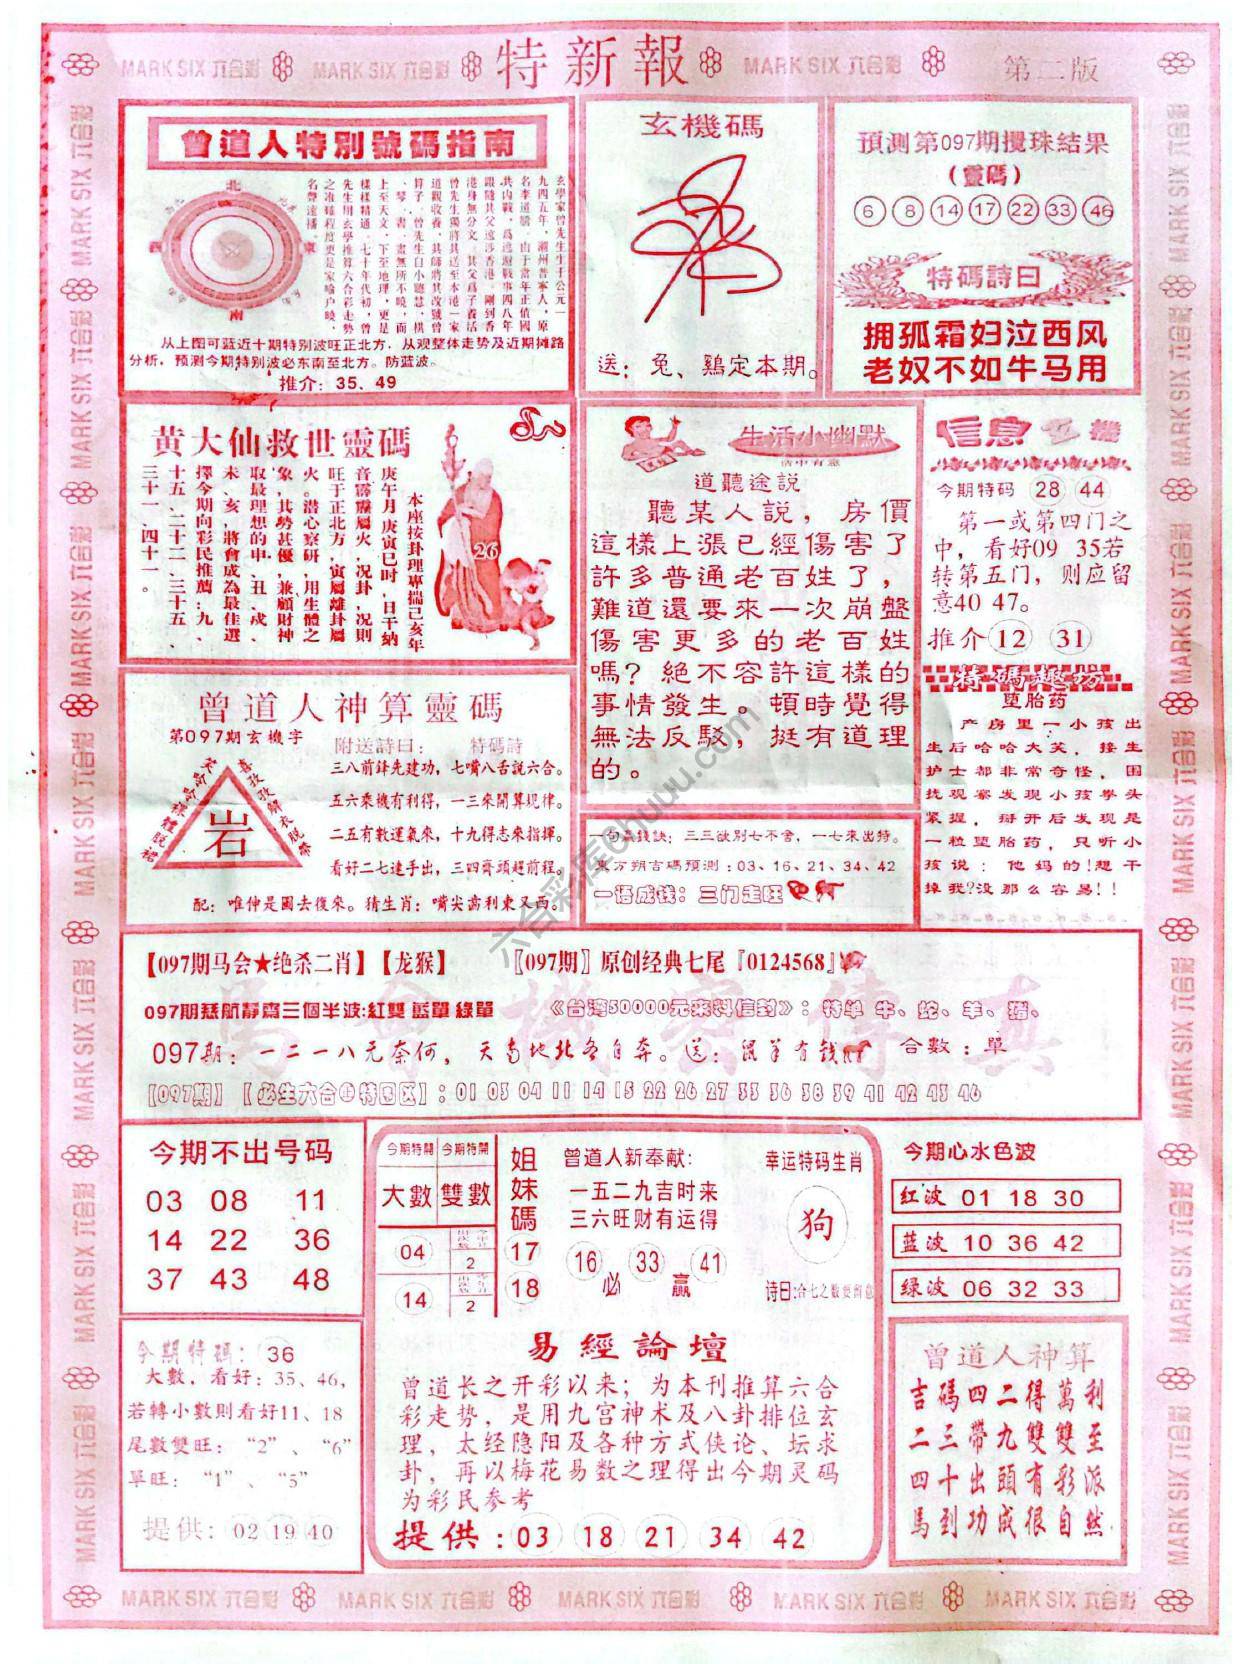 特新報
第二版
MARK SIX 六合彩
曾道人特別號碼指南
北
西
東
南
玄學家曾先生生于公元一
九四五年，潮州普寧人，原
跟隨其父遠涉香港。剛到香
港身無分文，其父爲了養活
曾先生獨將其送至本港一家
道觀收養，其師將其改號曾
上至天文，下至地理，更是
樣樣精通。七十年代初，曾
先生用玄學推算六合彩走勢
之准確程度更是家喻户曉，
名聲遠播。
从上图可蓝近十期特别波旺正北方，从观整体走势及近期摊路
分析，预测今期特别波必东南至北方。防蓝波。
推介：35、49
玄機碼
送：兔、鷄定本期。
預測第097期攪珠結果
(靈碼)
6 8 14 17 22 33 46
特碼詩曰
拥孤霜妇泣西风
老奴不如牛马用
黄大仙救世靈碼
本座按卦理專揣己亥年
庚午月庚寅巳时，日干纳
音霹靂屬火，况卦，况則
旺于正北方，寅屬離卦屬
火。潜心察研，用生體之
象，其勢甚優，兼顧財神
取最理想的申、丑、戍、
未、亥，將會成為最佳選
擇今期向彩民推薦：九、
十五、二十二、三十五、
三十一、四十一。
26
生活小幽默
道聽途説
聽某人説，房價
這樣上漲已經傷害了
許多普通老百姓了，
難道還要來一次崩盤
傷害更多的老百姓
嗎？絕不容許這樣的
事情發生。頓時覺得
無法反駁，挺有道理
的。
信息玄機
今期特码 28 44
第一或第四门之
中，看好09 35若
转第五门，则应留
意40 47。
推介 12 31
特碼趣坊
堕胎药
产房里一小孩出
生后哈哈大笑，接生
护士都非常奇怪，围
拢观察发现小孩拳头
紧握，掰开后发现是
一粒堕胎药，只听小
孩说：他妈的！想干
掉我？没那么容易！！
曾道人神算靈碼
第097期玄機字
岩
附送詩曰： 特碼詩
三八前鋒先建功，七嘴八舌説六合。
五六乘機有利得，一三來開算規律。
二五有數運氣來，十九得志來指揮。
看好二七連手出，三四齊頭趕前程。
配：唯伸是國去復來。猜生肖：嘴尖齒利東又西。
一句真錢訣：三三欲别七不會，一七來出特。
東方朔吉碼預測：03、16、21、34、42
一语成钱：三门走旺
【097期马会★绝杀二肖】【龙猴】
〖097期〗原创经典七尾『0124568』
097期慈航靜齋三個半波:紅雙 藍單 綠單
《台湾50000元来料信封》：特单 牛、蛇、羊、猪、
馬會機密傳真
097期：一二一八元奈何，天南地北各自奔。送：鼠羊有钱
合數：單
【097期】【必生六合㊣特围区】：01 03 04 11 14 15 22 26 27 33 36 38 39 41 42 43 46
今期不出号码
03 08 11
14 22 36
37 43 48
今期特開 今期特開
大數 雙數
04 2
14 2
姐妹碼
17
18
曾道人新奉献:
一五二九吉时来
三六旺财有运得
16 33 41
必 赢
幸运特码生肖
狗
诗曰:合七之数要留意
今期心水色波
红波 01 18 30
蓝波 10 36 42
绿波 06 32 33
今期特碼：36
大數，看好：35、46，
若轉小數則看好11、18
尾數雙旺：“2”、“6”
單旺：“1”、“5”
提供: 02 19 40
易經論壇
曾道长之开彩以来；为本刊推算六合
彩走势，是用九宫神术及八卦排位玄
理，太经隐阳及各种方式侠论、坛求
卦，再以梅花易数之理得出今期灵码
为彩民参考
提供：03 18 21 34 42
曾道人神算
吉碼四二得萬利
二三帶九雙雙至
四十出頭有彩派
馬到功成很自然
六合彩库6huuu.com